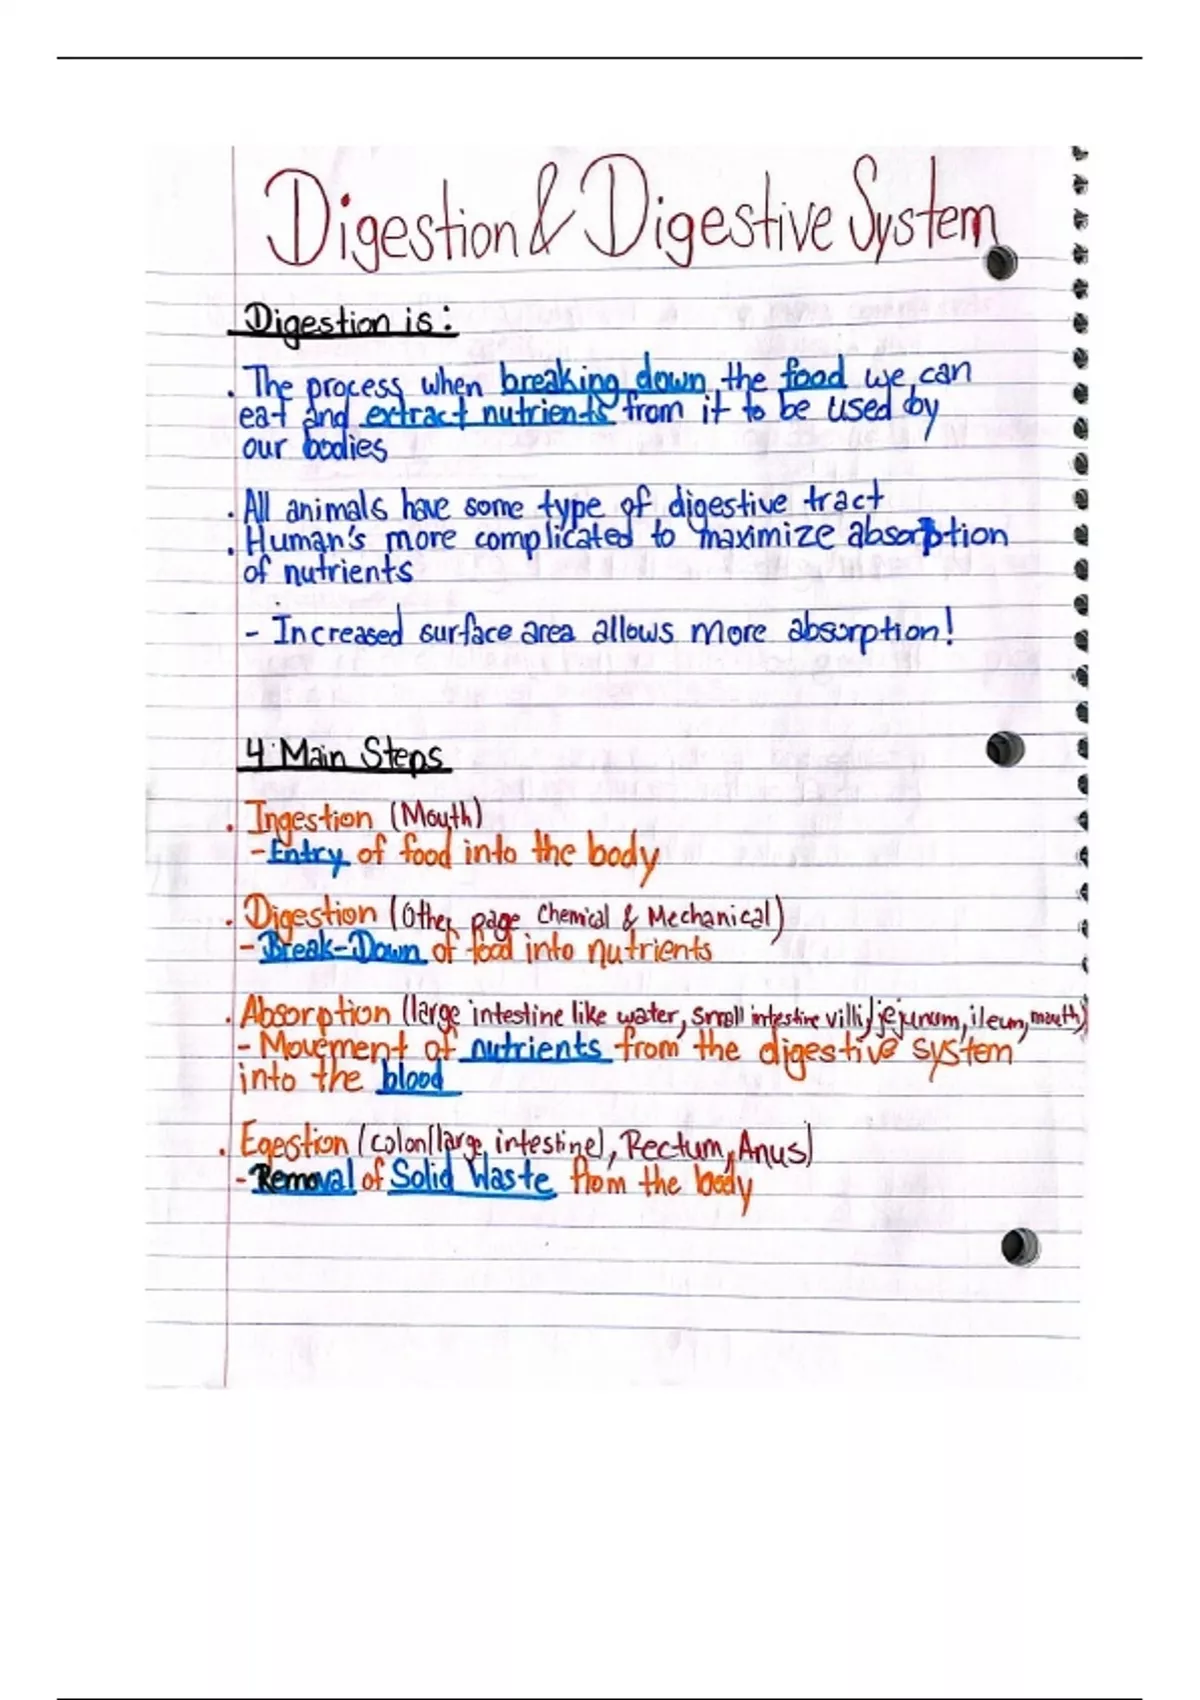 Digestion & Digestive System
Digestion is:
. The process when breaking down the food we can
eat and extract nutrients from it to be used by
our bodies
. All animals have some type of digestive tract
. Human's more complicated to maximize absorption
of nutrients
- Increased surface area allows more absorption!
4 Main Steps
. Ingestion (Mouth)
- Entry of food into the body
. Digestion (Other page Chemical & Mechanical)
- Break-Down of food into nutrients
. Absorption (large intestine like water, small intestine villi, jejunum, ileum, mouth)
- Movement of nutrients from the digestive system
into the blood
. Egestion (colon(large intestine), Rectum, Anus)
- Removal of Solid Waste from the body